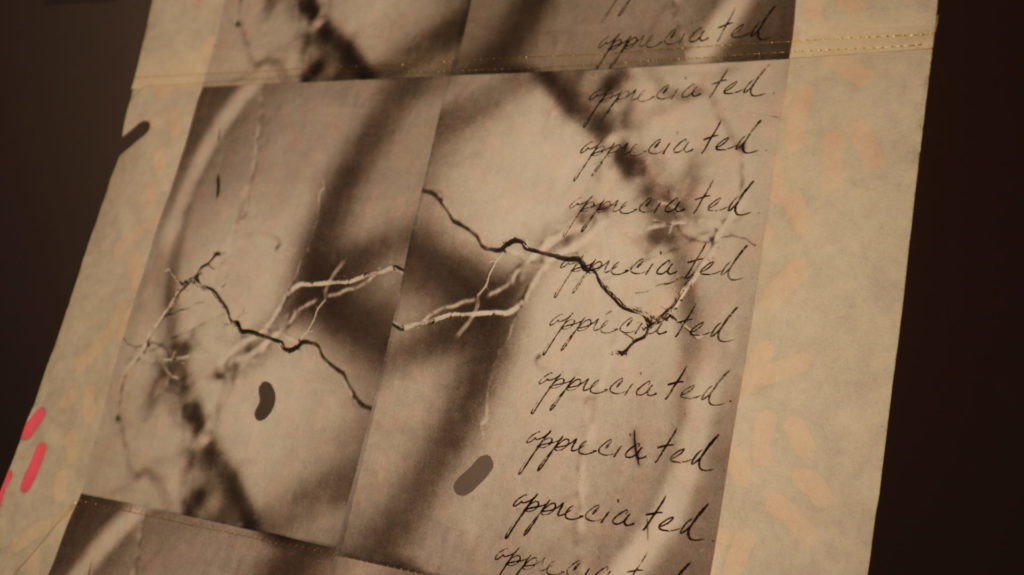 appreciated.
appreciated.
appreciated.
appreciated.
appreciated.
appreciated.
appreciated.
appreciated.
appreciated.
appreciated.